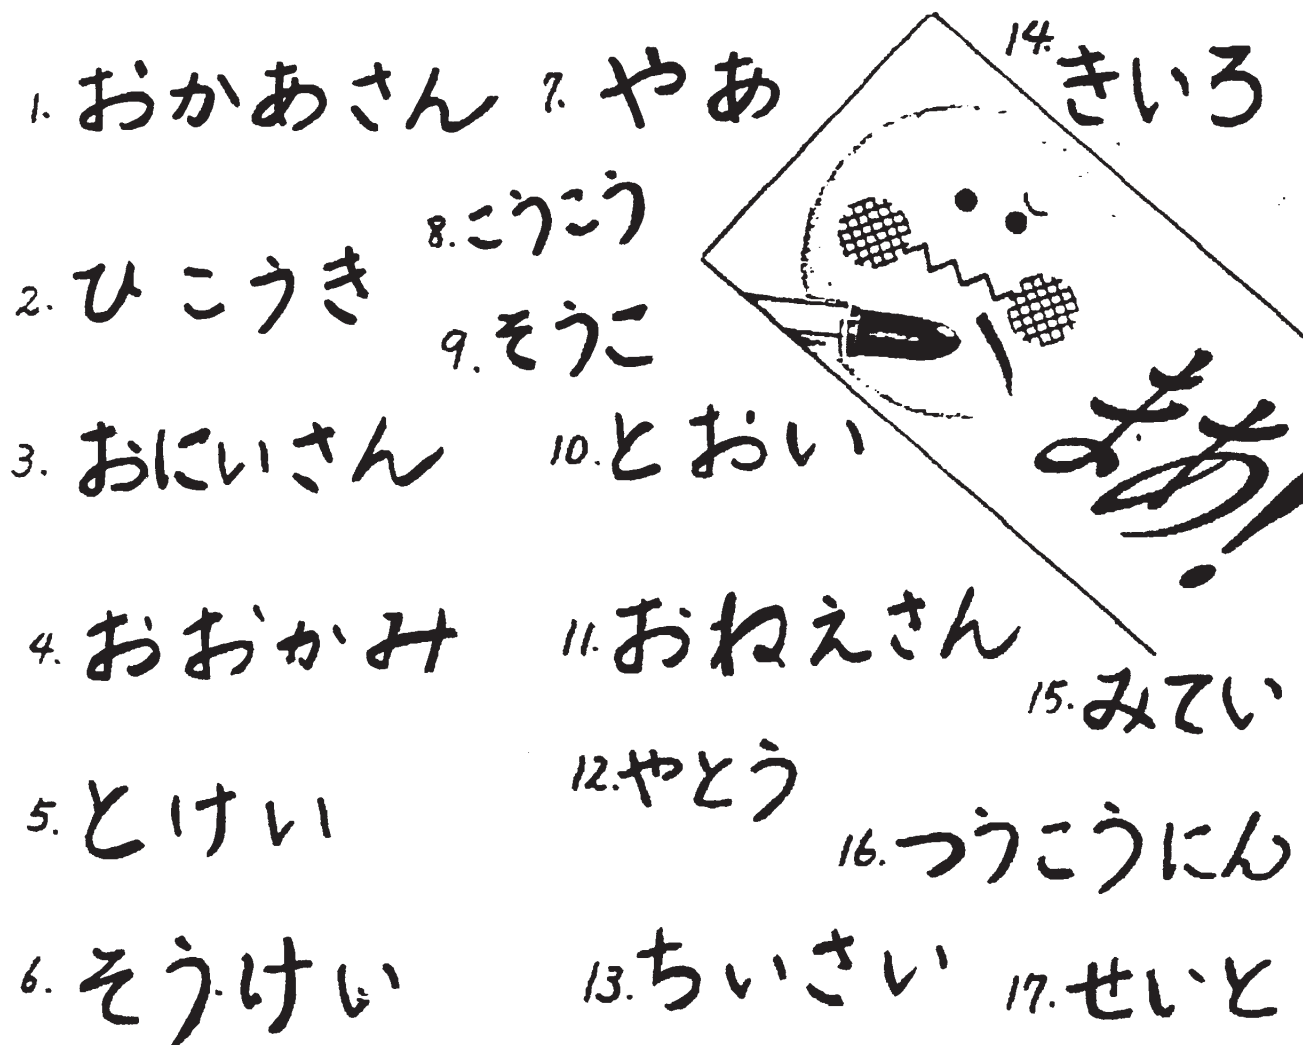 1. おかあさん
2. ひこうき
3. おにいさん
4. おおかみ
5. とけい
6. そうけい
7. やあ
8. こうこう
9. そうこ
10. とおい
11. おねえさん
12. やとう
13. ちいさい
14. きいろ
まあ!
15. みてい
16. つうこうにん
17. せいと